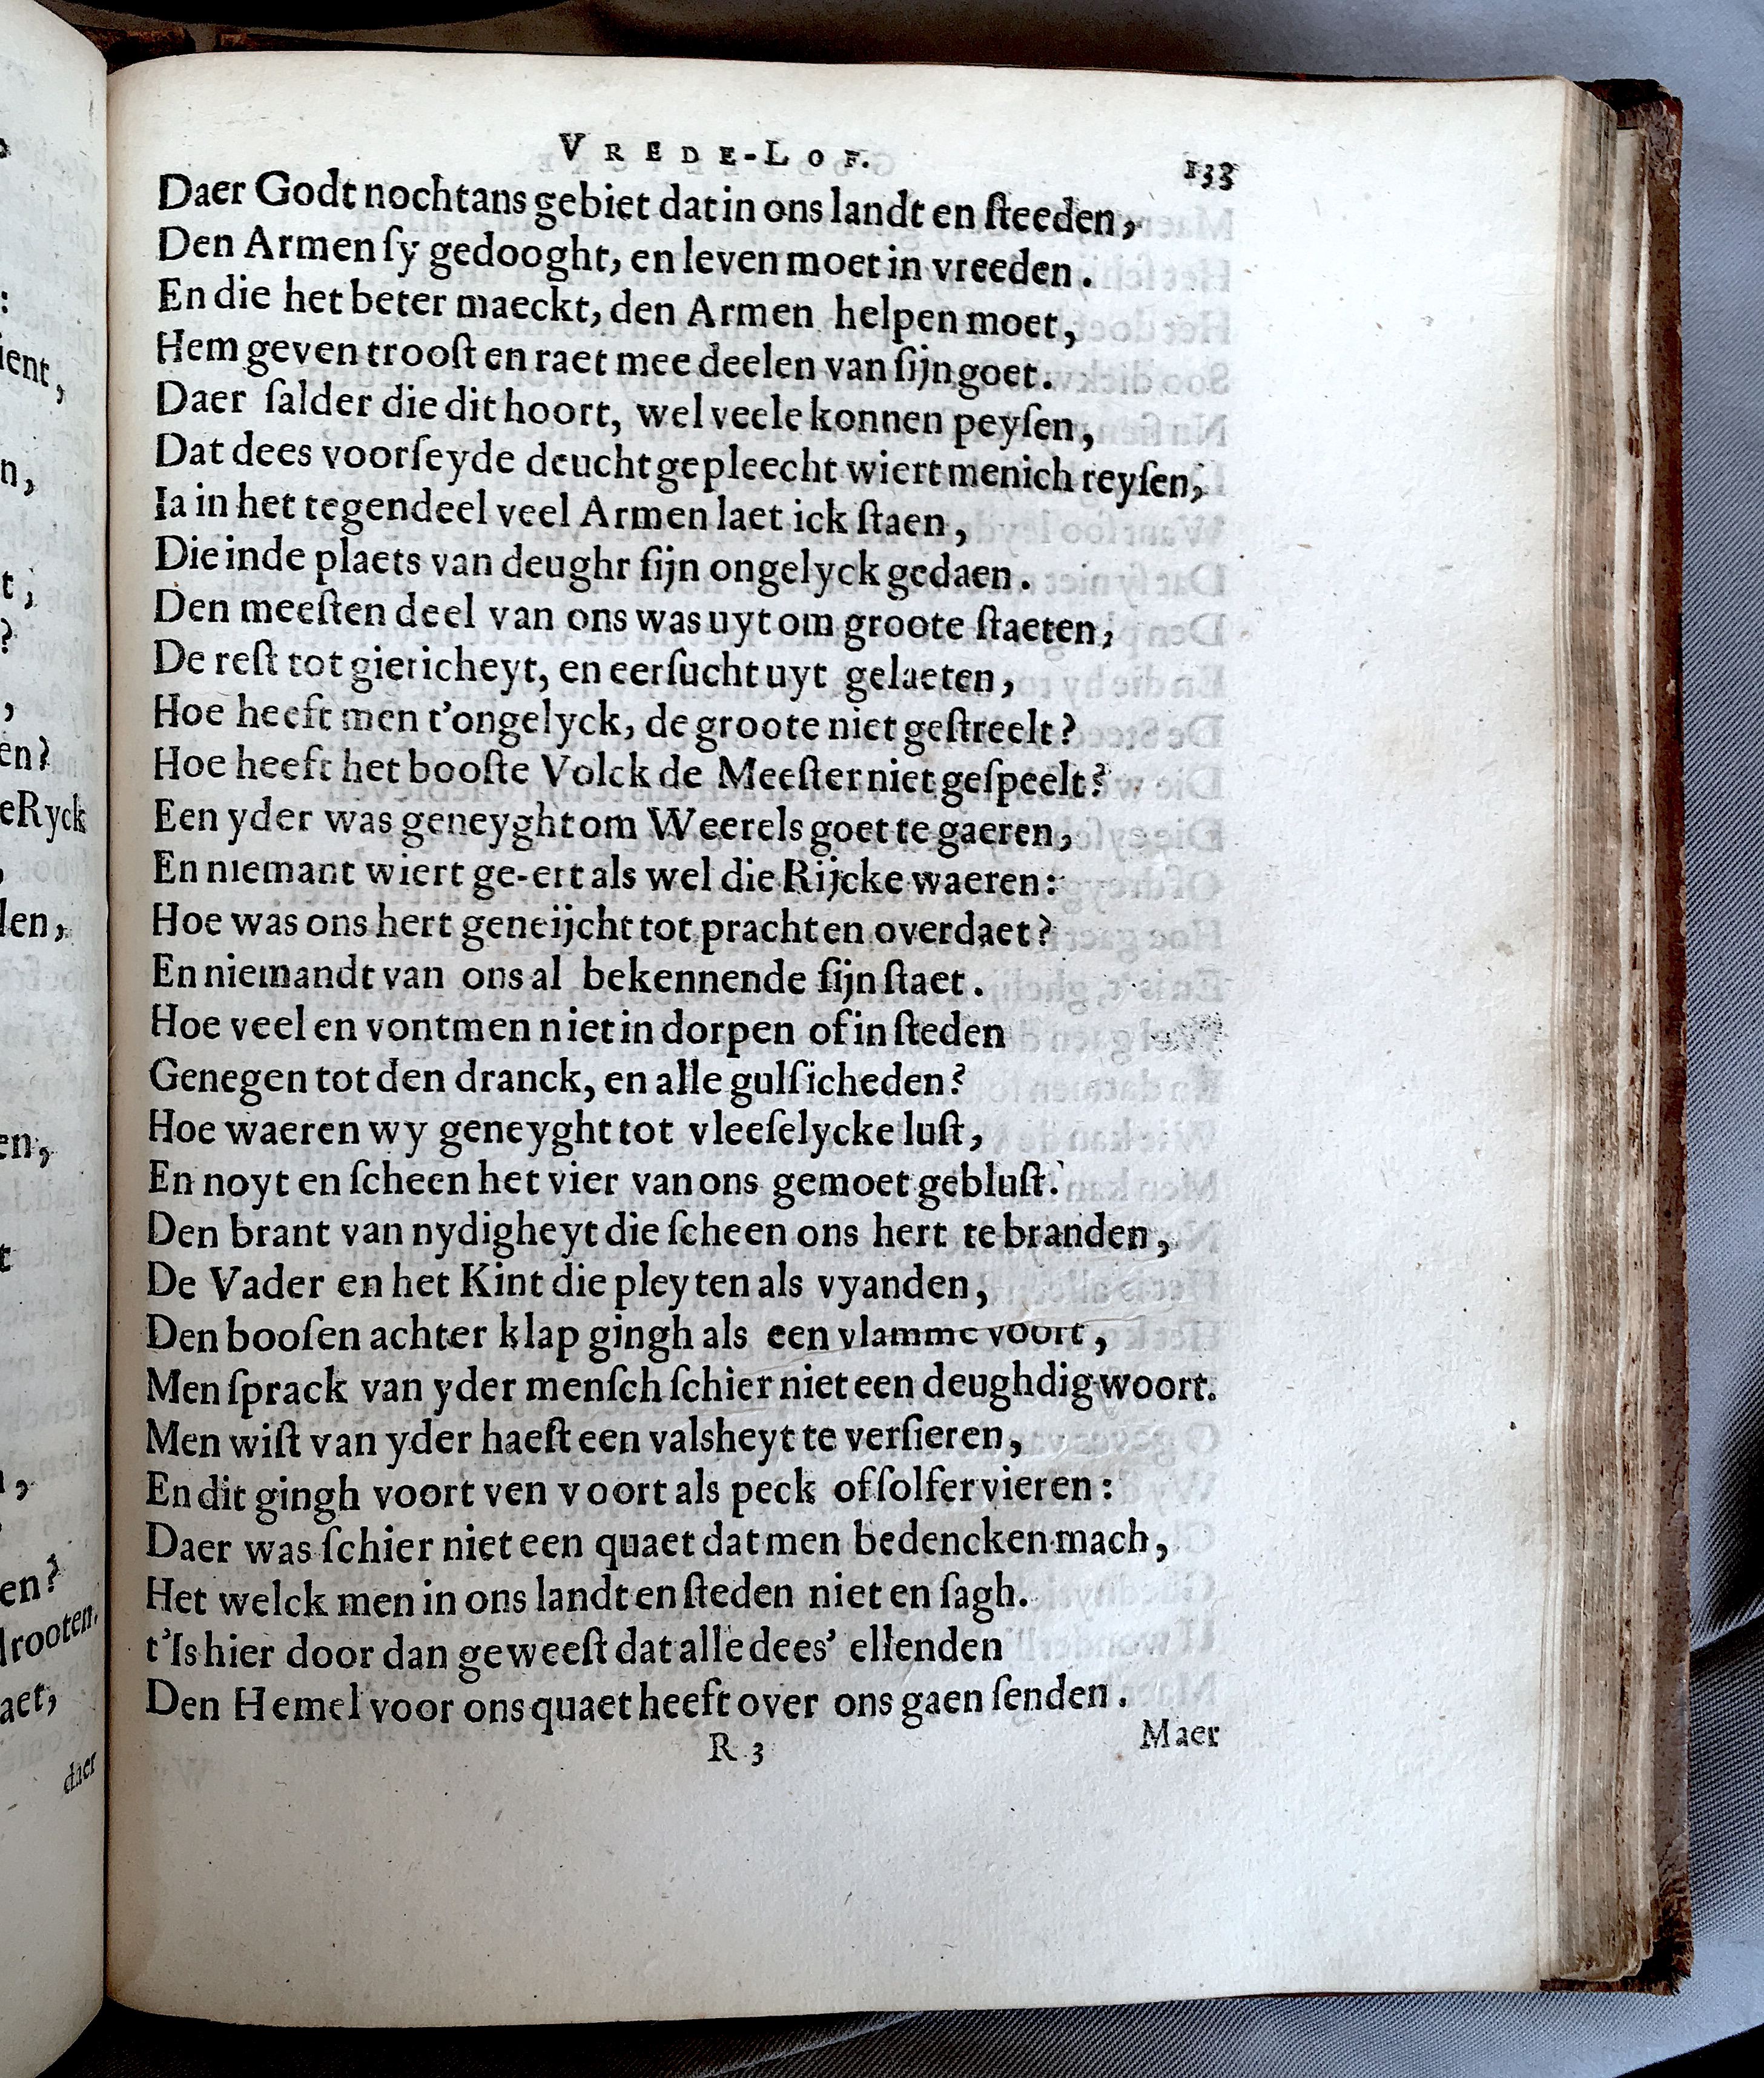 VREDE-LOF. 133
Daer Godt nochtans gebiet dat in ons landt en ſteeden,
Den Armen ſy gedooght, en leven moet in vreeden.
En die het beter maeckt, den Armen helpen moet,
Hem geven trooſt en raet mee deelen van ſijn goet.
Daer ſalder die dit hoort, wel veele konnen peyſen,
Dat dees voorſeyde deucht gepleecht wiert menich reyſen,
Ia in het tegendeel veel Armen laet ick ſtaen,
Die inde plaets van deughr ſijn ongelyck gedaen.
Den meeſten deel van ons was uyt om groote ſtaeten,
De reſt tot giericheyt, en eerſucht uyt gelaeten,
Hoe heeft men t'ongelyck, de groote niet geſtreelt?
Hoe heeft het booſte Volck de Meeſter niet geſpeelt?
Een yder was geneyght om Weerels goet te gaeren,
En niemant wiert ge-ert als wel die Rijcke waeren:
Hoe was ons hert geneijcht tot pracht en overdaet?
En niemandt van ons al bekennende ſijn ſtaet.
Hoe veel en vontmen niet in dorpen of in ſteden
Genegen tot den dranck, en alle gulſicheden?
Hoe waeren wy geneyght tot vleeſelycke luſt,
En noyt en ſcheen het vier van ons gemoet gebluſt.
Den brant van nydigheyt die ſcheen ons hert te branden,
De Vader en het Kint die pleyten als vyanden,
Den booſen achter klap gingh als een vlamme voort,
Men ſprack van yder menſch ſchier niet een deughdig woort.
Men wiſt van yder haeſt een valsheyt te verſieren,
En dit gingh voort ven voort als peck of ſolfer vieren:
Daer was ſchier niet een quaet dat men bedencken mach,
Het welck men in ons landt en ſteden niet en ſagh.
t'Is hier door dan geweeſt dat alle dees' ellenden
Den Hemel voor ons quaet heeft over ons gaen ſenden.
R 3 Maer